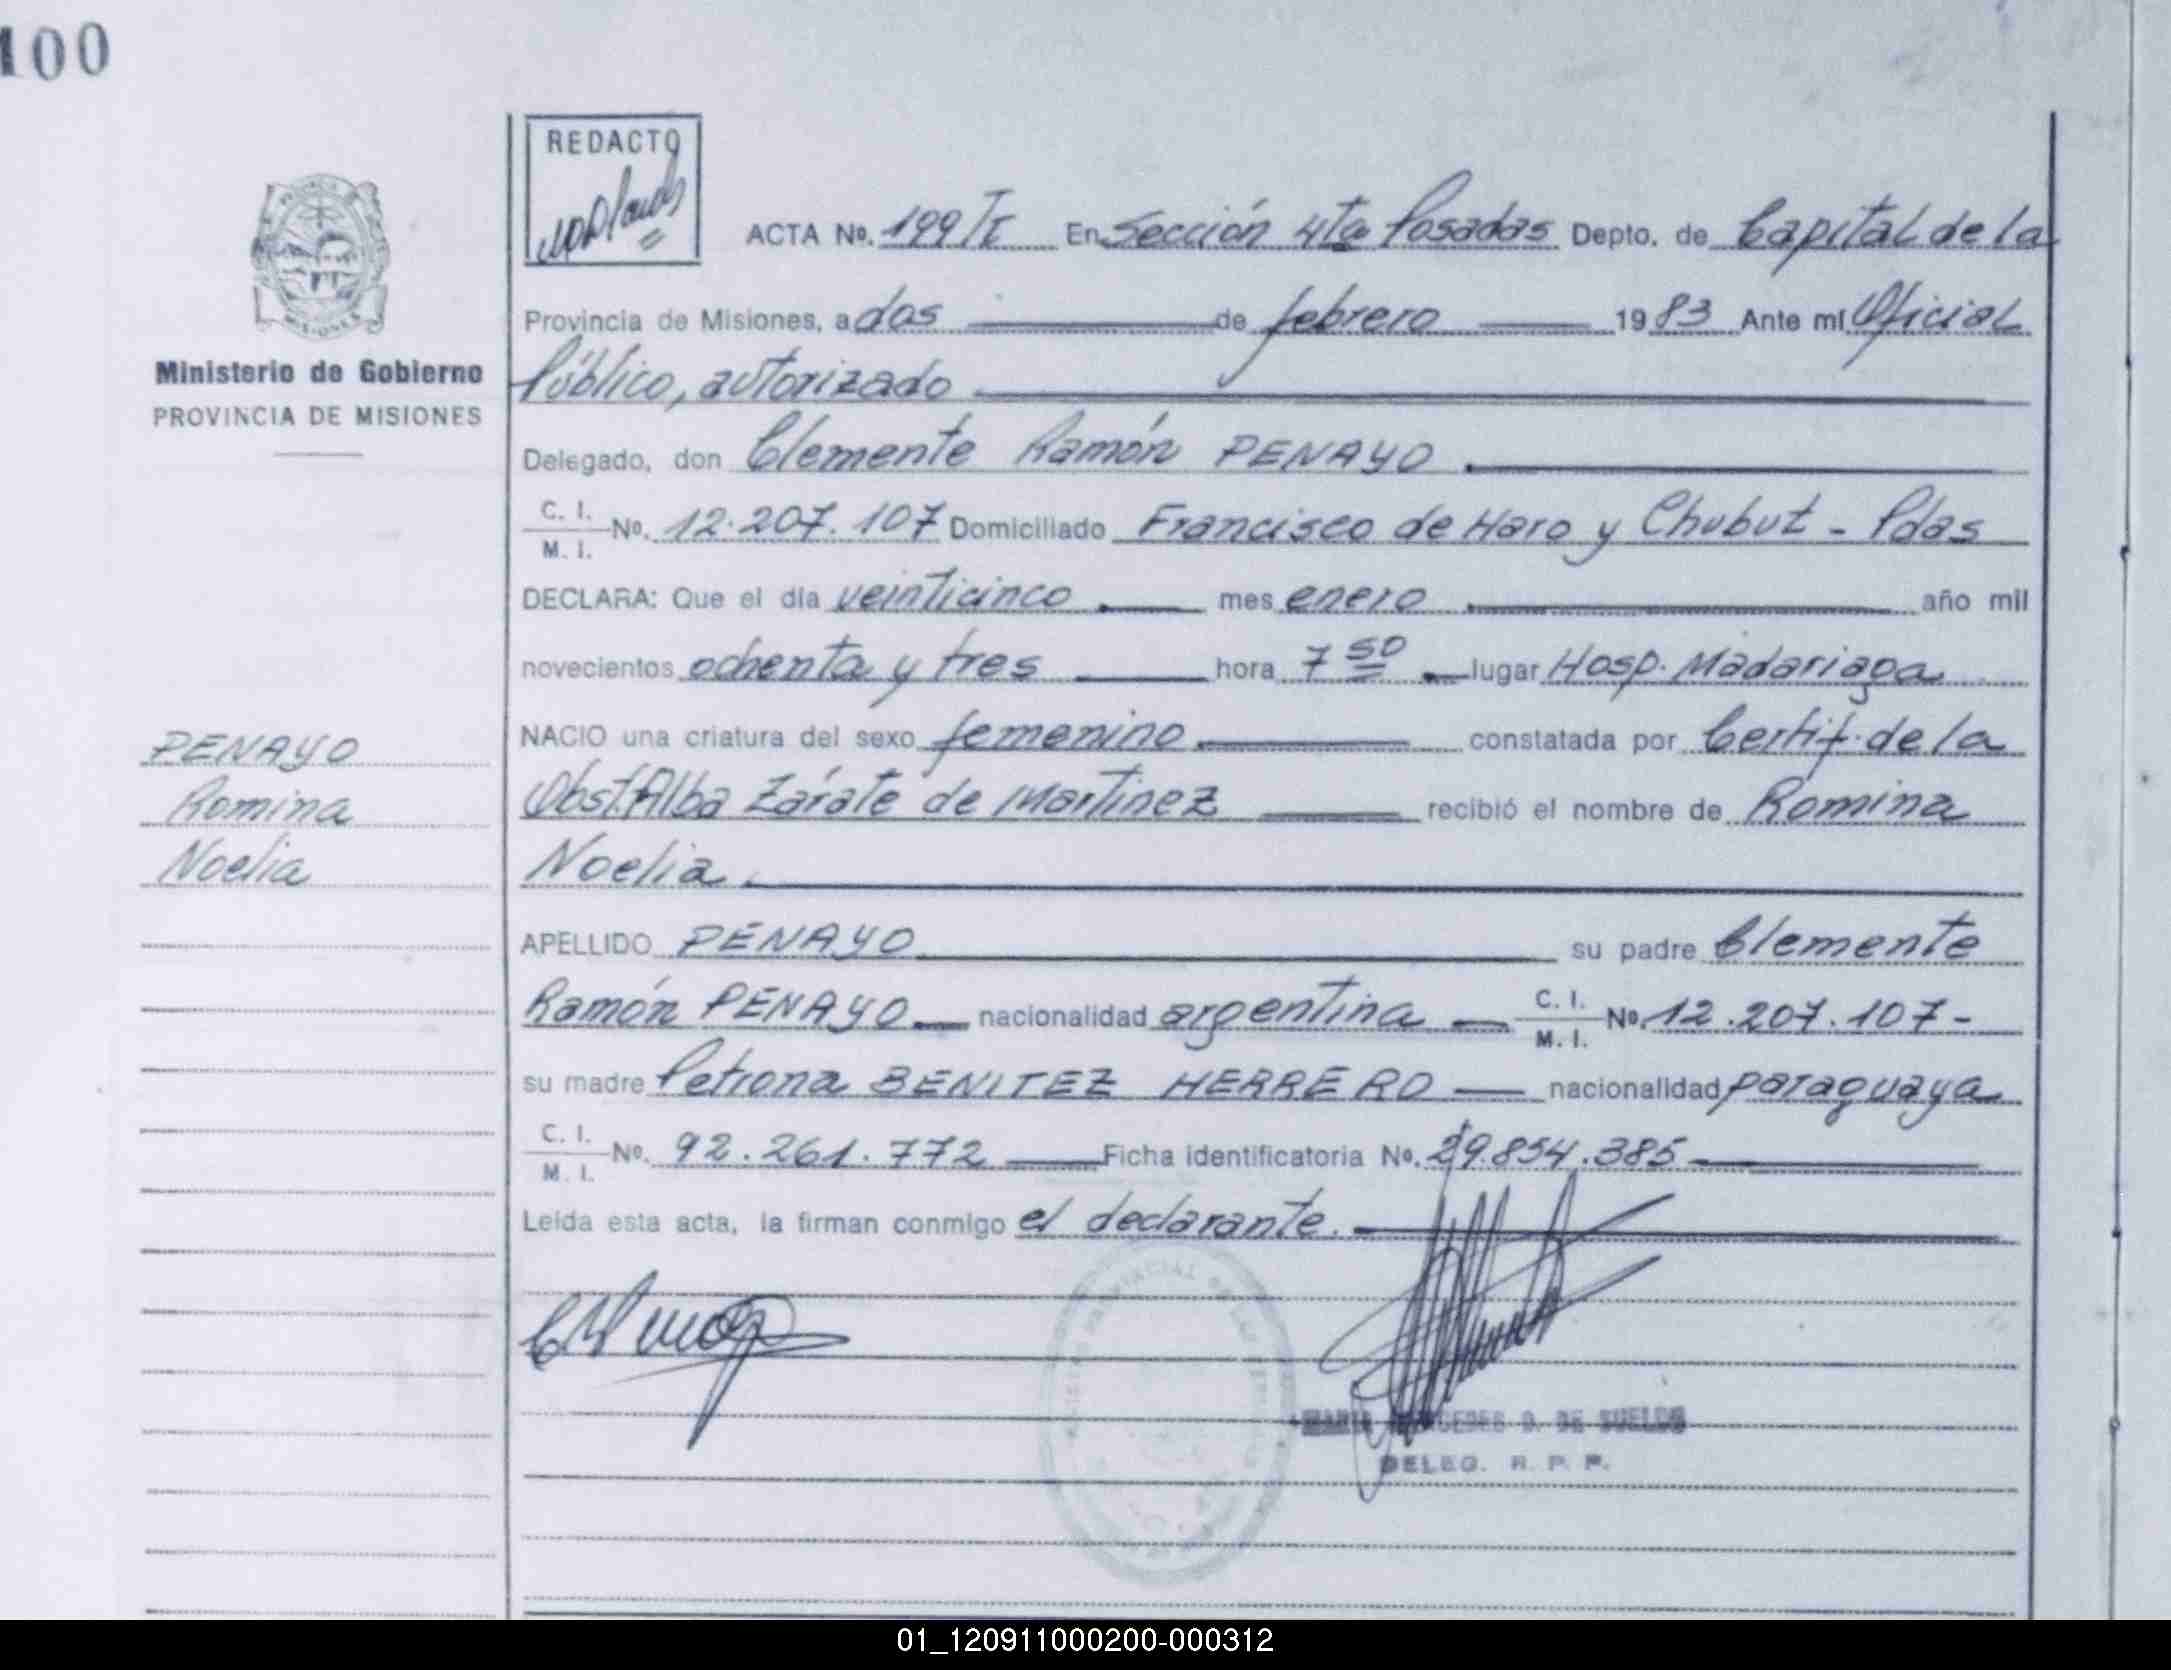 100
REDACTO
ACTA No. 199/I En Sección 4ta Posadas Depto. de Capital de la
Provincia de Misiones, a dos de febrero 1983 Ante mí Oficial
Público, autorizado
Delegado, don Clemente Ramón PENAYO
C. I.
M. I. No. 12.207.107 Domiciliado Francisco de Haro y Chubut - Pdas
DECLARA: Que el día veinticinco mes enero año mil
novecientos ochenta y tres hora 7 50 lugar Hosp. Madariaga
NACIO una criatura del sexo femenino constatada por Certif. de la
Obst. Alba Zárate de Martinez recibió el nombre de Romina
Noelia
APELLIDO PENAYO su padre Clemente
Ramón PENAYO nacionalidad argentina C. I.
M. I. No. 12.207.107-
su madre Petrona BENITEZ HERRERO nacionalidad paraguaya
C. I.
M. I. No. 92.261.772 Ficha identificatoria No. 29.854.385
Leída esta acta, la firman conmigo el declarante.
D. DE SUELDO
DELEG. R. P. P.
Ministerio de Gobierno
PROVINCIA DE MISIONES
PENAYO
Romina
Noelia
MISIONES
01_120911000200-000312